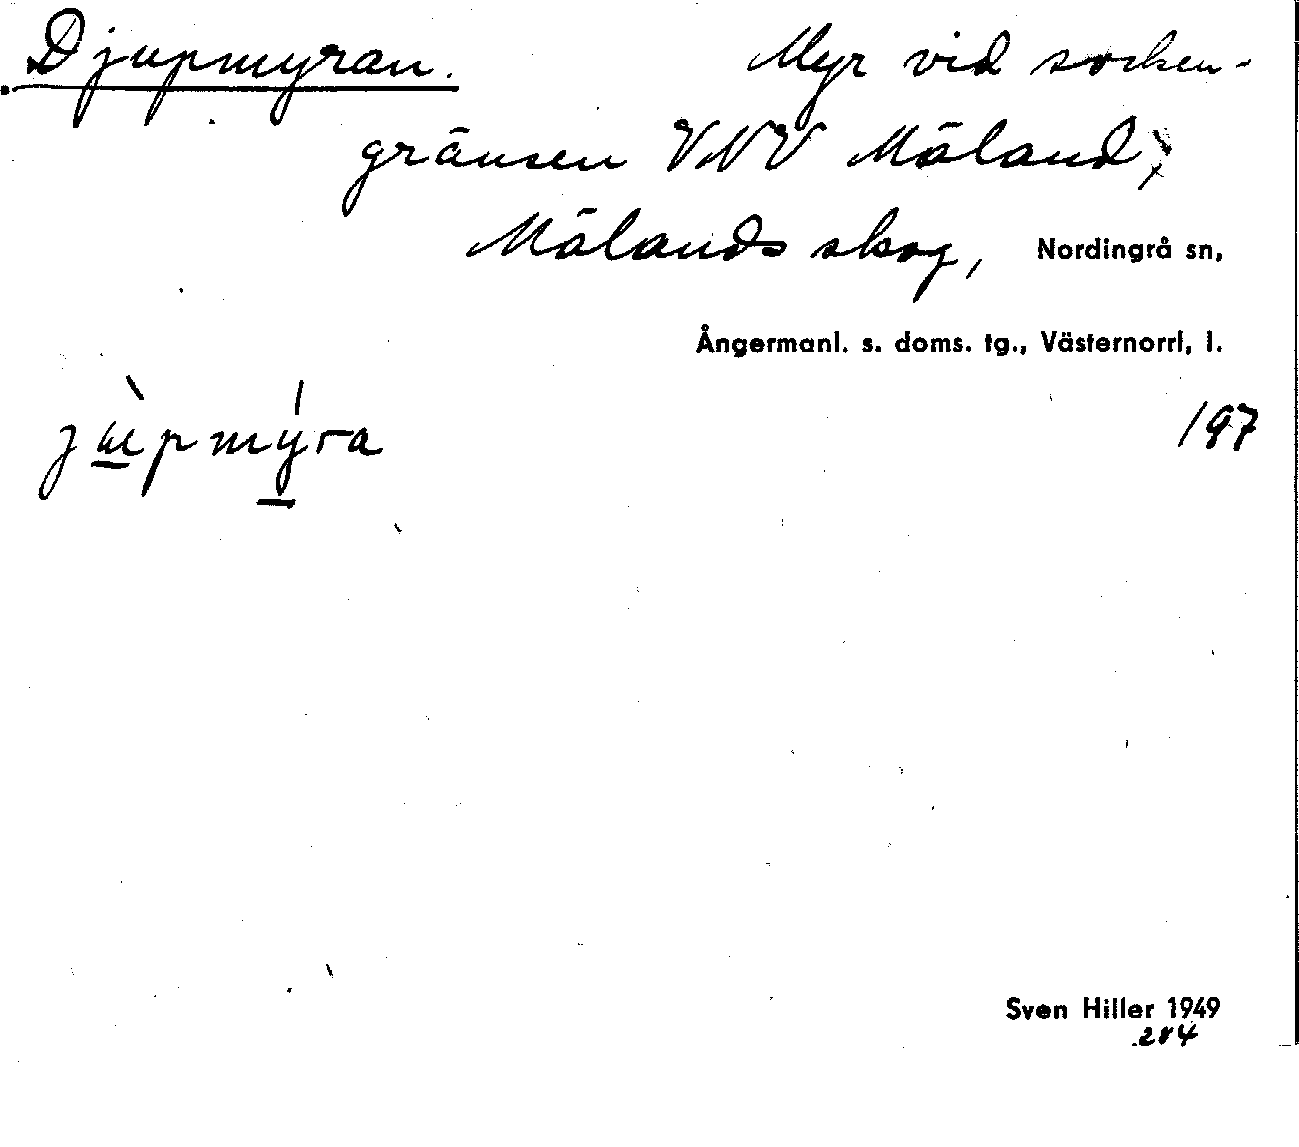 Djupmyran. Myr vid socken-
gränsen VNV Mäland,
Mälands skog, Nordingrå sn,
Ångermanl. s. doms. tg., Västernorrl. l.
jʉ̀pmýra 197
Sven Hiller 1949
284